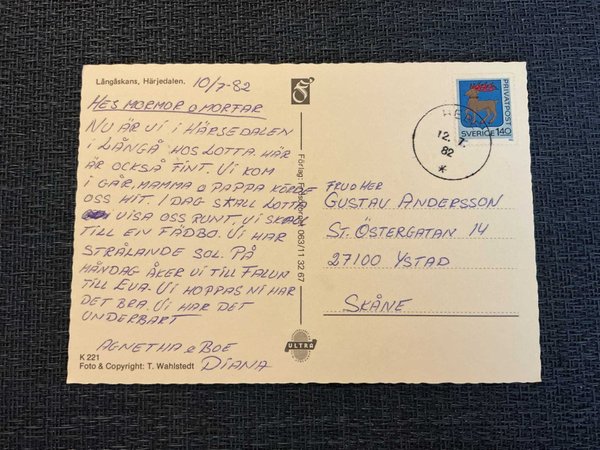 Långåskans, Härjedalen.
10/7-82
HEJ MORMOR O MORFAR
NU ÄR VI I HÄRJEDALEN
I LÅNGÅ HOS LOTTA. HÄR
ÄR OCKSÅ FINT. VI KOM
I GÅR, MAMMA O PAPPA KÖRDE
OSS HIT. I DAG SKALL LOTTA
VISA OSS RUNT, VI SKALL
TILL EN FÄBO. VI HAR
STRÅLANDE SOL. PÅ
MÅNDAG ÅKER VI TILL FALUN
TILL EVA. VI HOPPAS NI HAR
DET BRA. VI HAR DET
UNDERBART
AGNETHA O BOE
DIANA
K 221
Foto & Copyright: T. Wahlstedt
Förlag: 063/11 32 67
ULTRA
PRIVATPOST
SVERIGE 140
12. 7.
82
FRU O HER
GUSTAV ANDERSSON
ST. ÖSTERGATAN 14
27100 YSTAD
SKÅNE